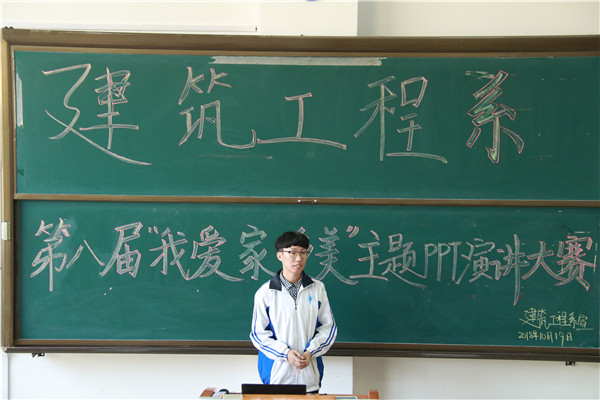 建筑工程系
第八届"我爱家美"主题PPT演讲大赛
建筑工程系
2018年10月19日